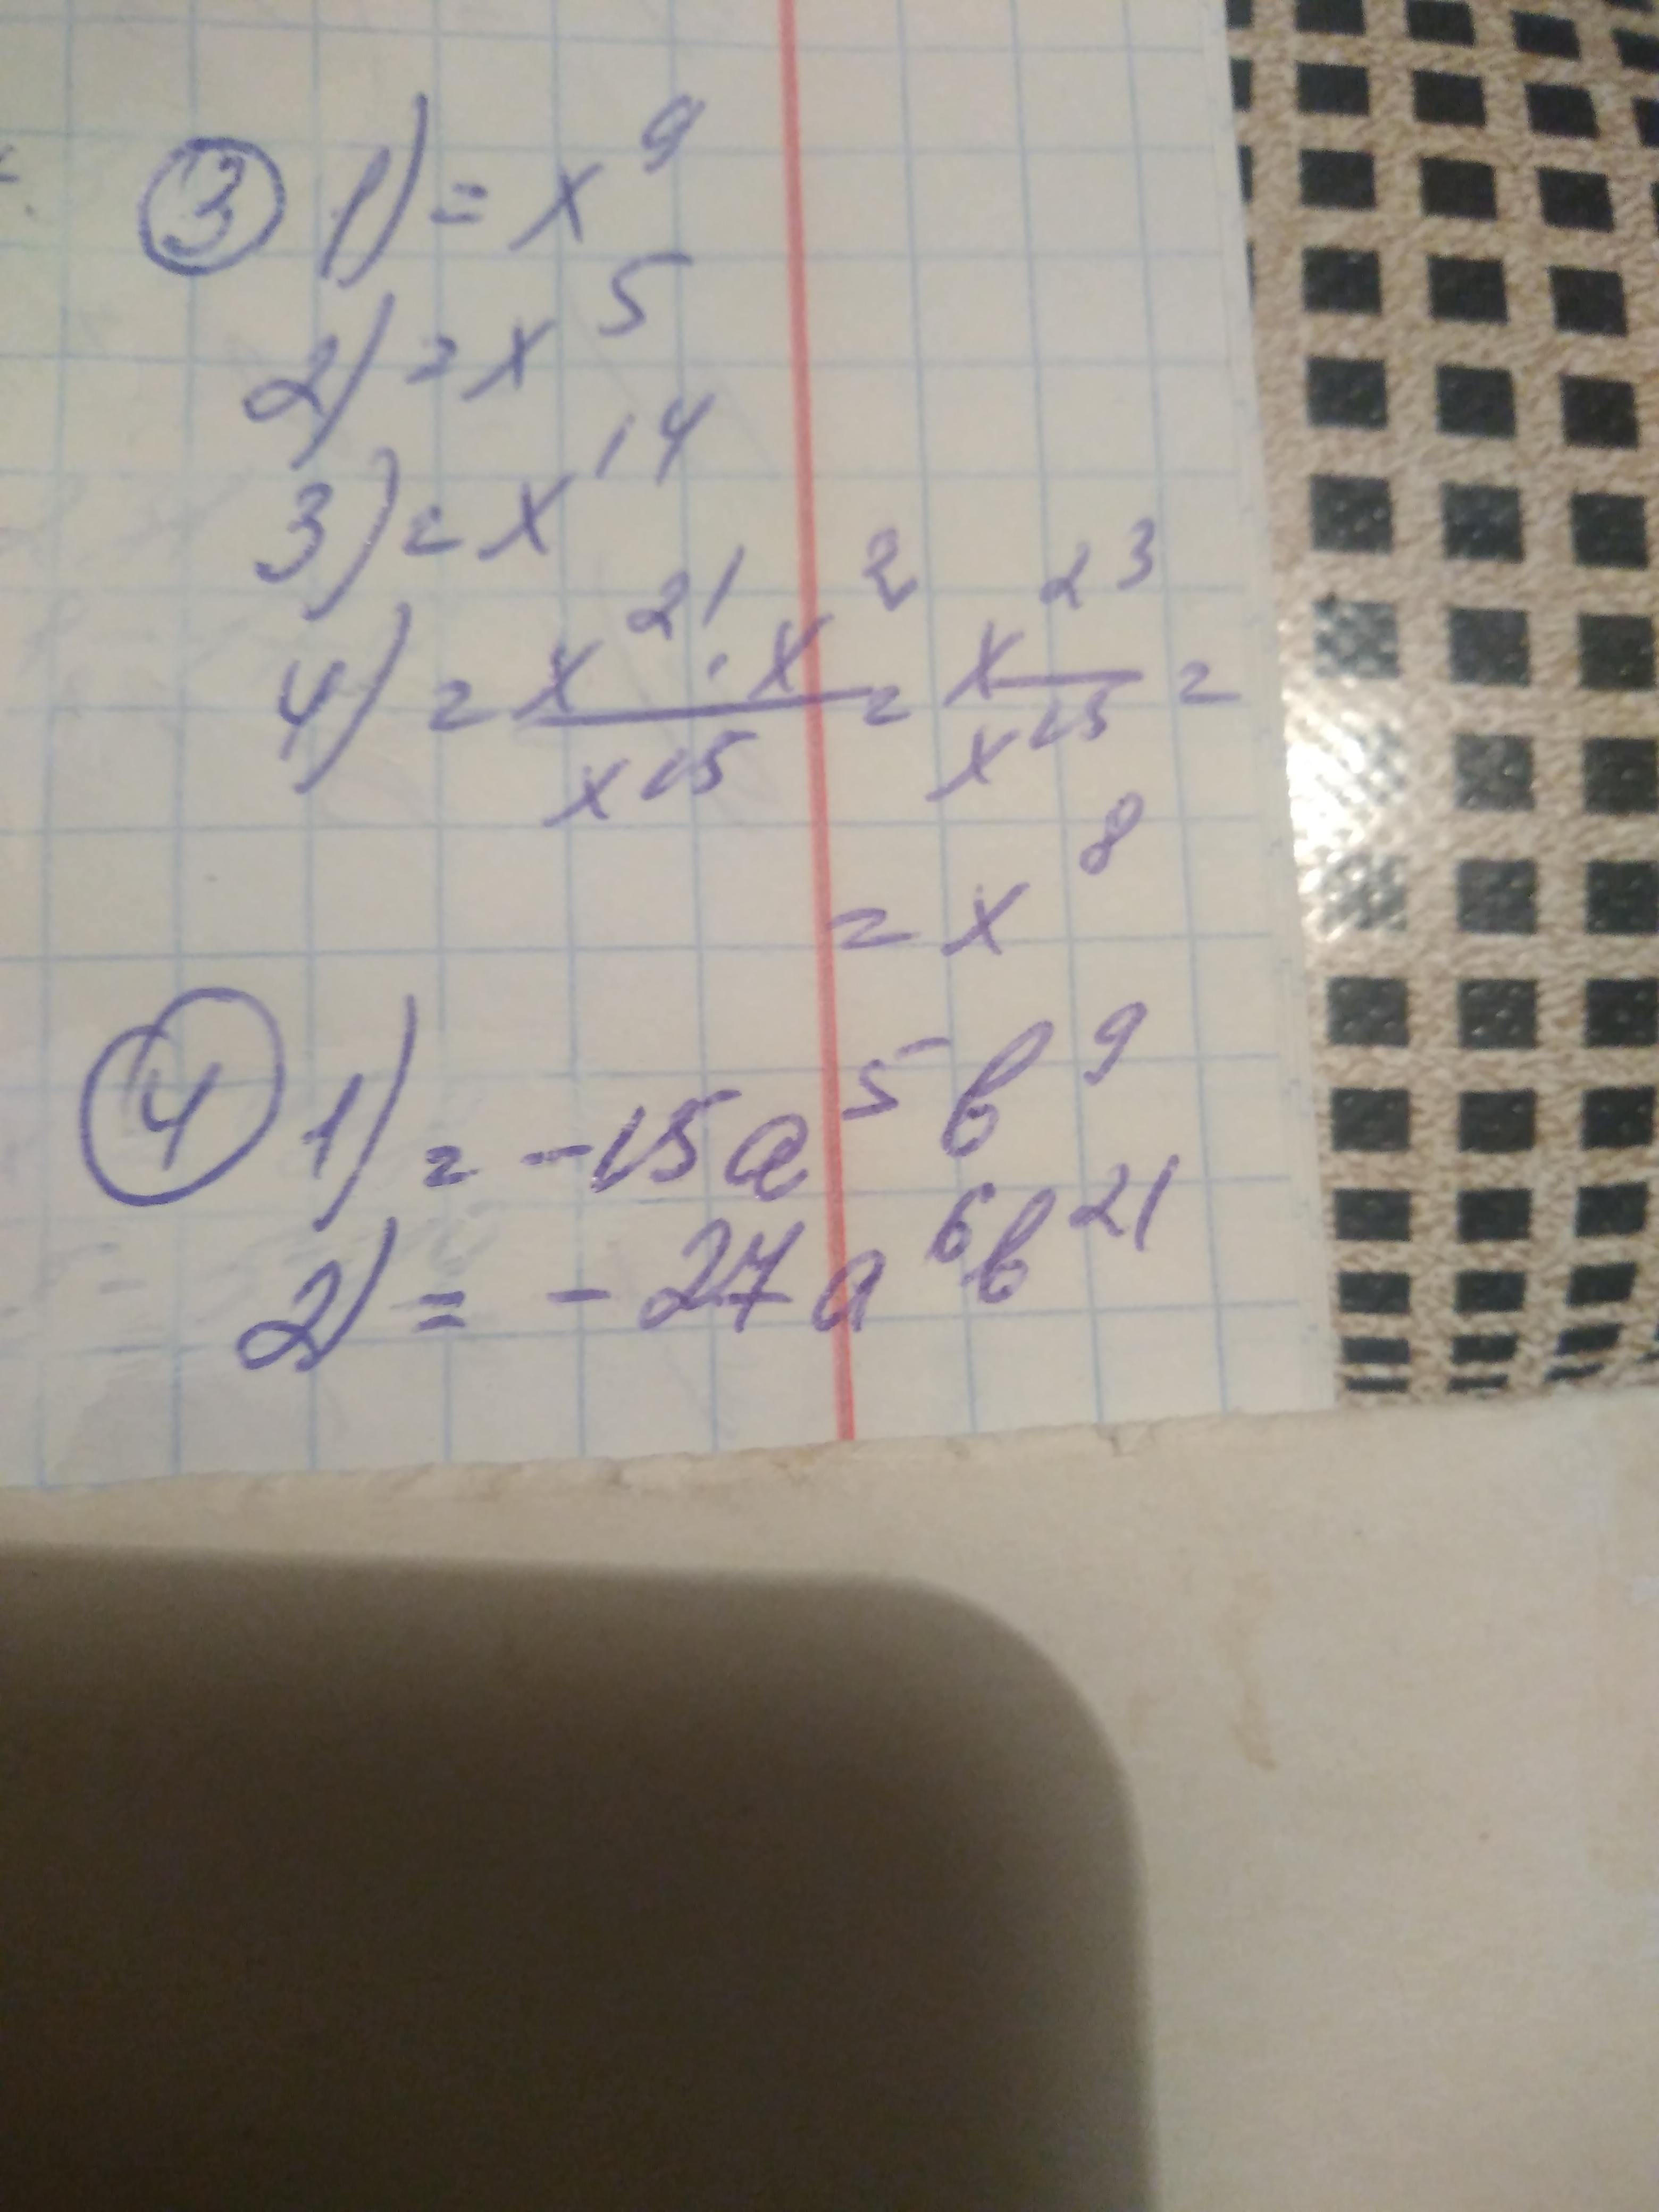 ③ 1) = x⁹
2) = x⁵
3) = x¹⁴
4) = x²¹ · x² / x¹⁵ = x²³ / x¹⁵ =
= x⁸
④ 1) = -15a⁵b⁹
2) = -27a⁶b²¹